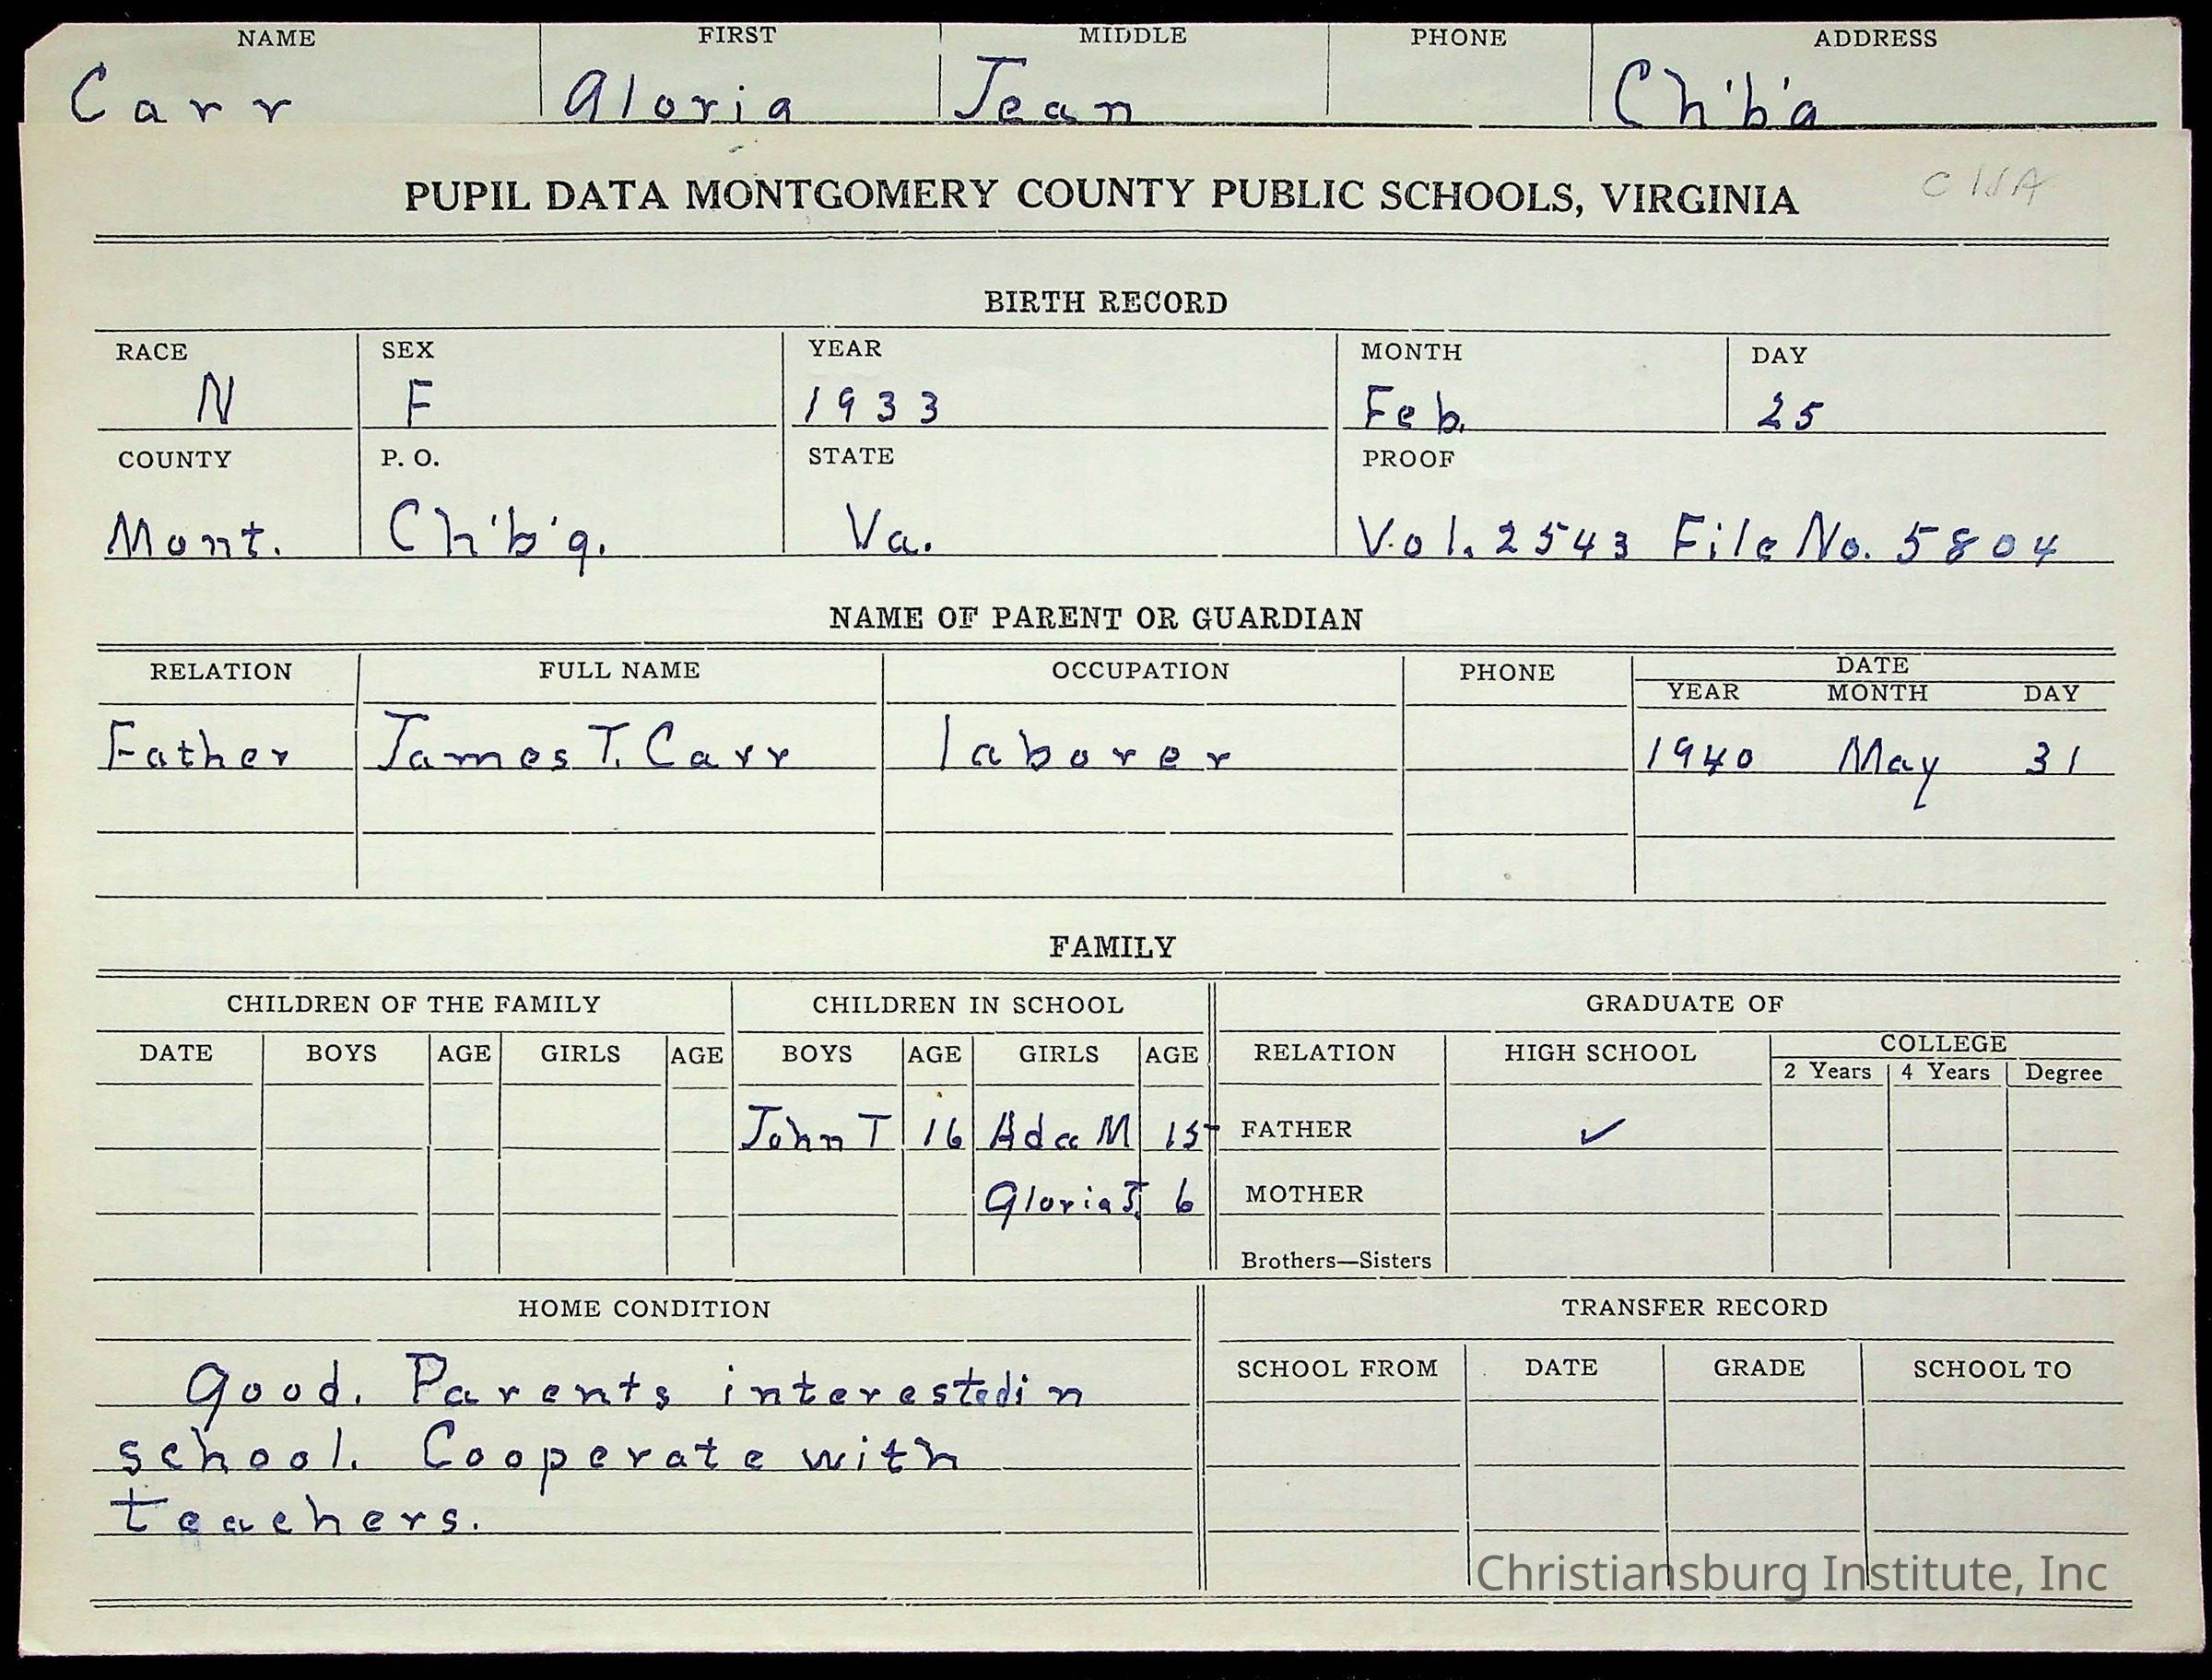 NAME FIRST MIDDLE PHONE ADDRESS
Carr Gloria Jean Ch'b'g
PUPIL DATA MONTGOMERY COUNTY PUBLIC SCHOOLS, VIRGINIA
BIRTH RECORD
RACE SEX YEAR MONTH DAY
N F 1933 Feb. 25
COUNTY P. O. STATE PROOF
Mont. Ch'b'g. Va. Vol. 2543 File No. 5804
NAME OF PARENT OR GUARDIAN
RELATION FULL NAME OCCUPATION PHONE DATE
YEAR MONTH DAY
Father James T. Carr laborer 1940 May 31
FAMILY
CHILDREN OF THE FAMILY CHILDREN IN SCHOOL GRADUATE OF
DATE BOYS AGE GIRLS AGE BOYS AGE GIRLS AGE RELATION HIGH SCHOOL COLLEGE
2 Years 4 Years Degree
John T 16 Ada M 15 FATHER ✓
Gloria J. 6 MOTHER
Brothers—Sisters
HOME CONDITION TRANSFER RECORD
SCHOOL FROM DATE GRADE SCHOOL TO
Good. Parents interested in
school. Cooperate with
teachers.
Christiansburg Institute, Inc